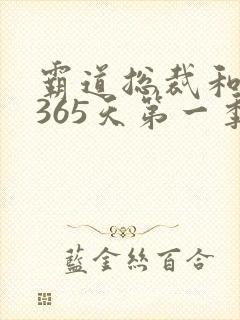 霸道总裁和
365天第一季
藍金絲百合